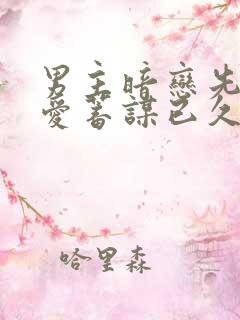 男主暗戀先
愛蓄謀已久
哈里森